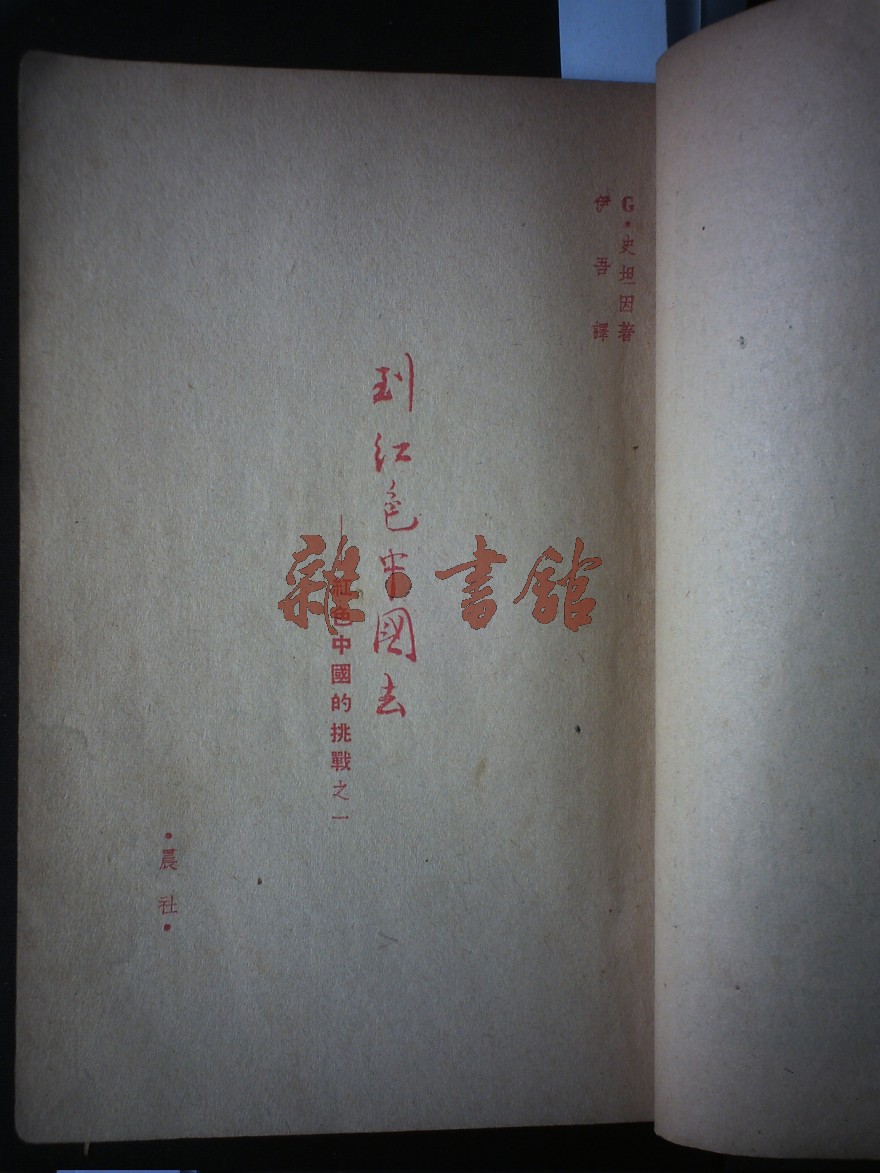 G·史坦因著
伊吾譯
到紅色中國去
——紅色中國的挑戰之一
·晨社·
雜·書館